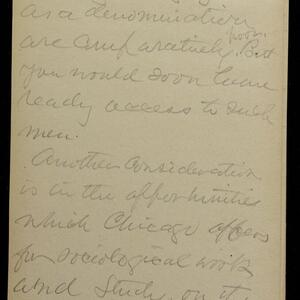 as a denomination
are comparatively poor. But
you would soon have
ready access to such
men.
Another consideration
is in the opportunities
which Chicago offers
for sociological work
and study, on the